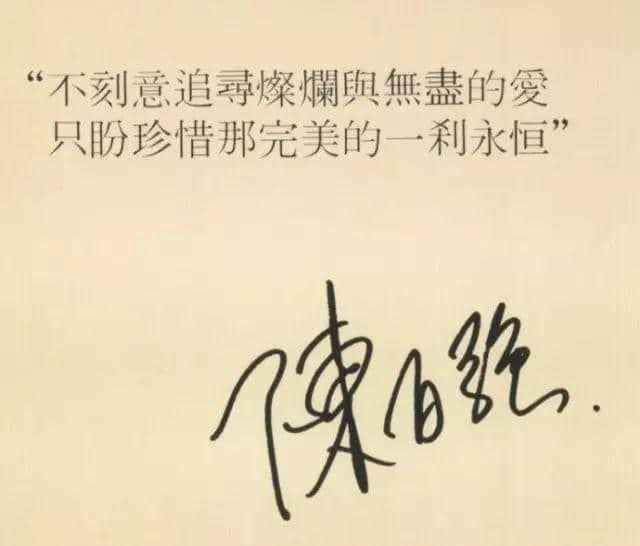 “不刻意追尋燦爛與無盡的愛
只盼珍惜那完美的一剎永恒”
陳百強.